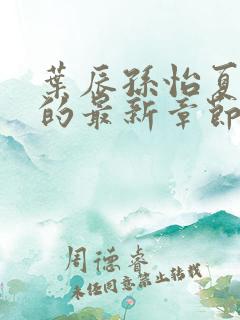 葉辰孫怡夏
的最新章節
周德睿
未经同意禁止转载